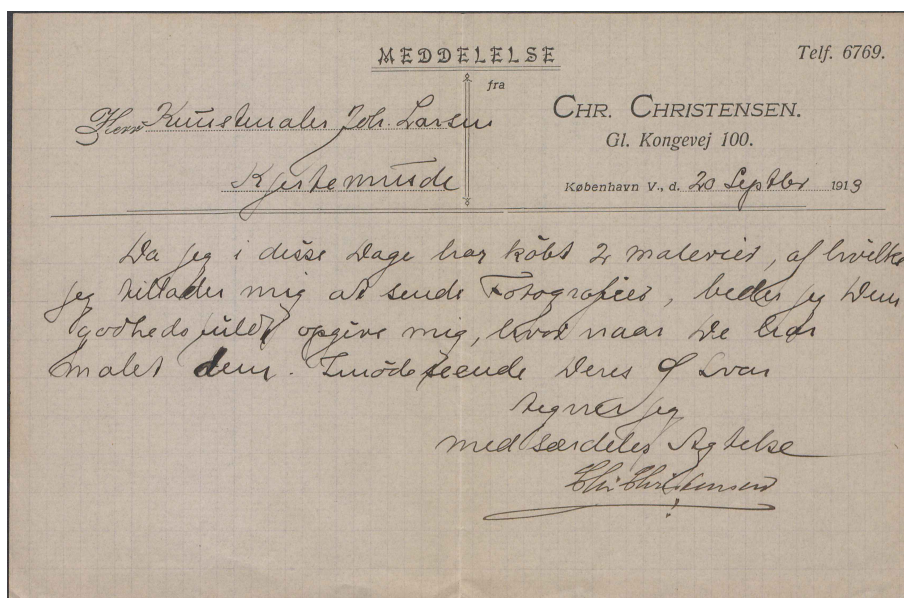 MEDDELELSE
Telf. 6769.
fra
Herr Kunstmaler Joh. Larsen
CHR. CHRISTENSEN.
Gl. Kongevej 100.
Kjertemunde
København V., d. 20 Septber 1913
Da jeg i disse Dage har købt 2 malerier, af hvilke
jeg tillader mig at sende Fotografier, beder jeg Dem
godhedsfuldt opgive mig, hvor naar De har
malet dem. Imødeseende Deres Svar
tegner jeg
med særdeles Agtelse
Chr Christensen